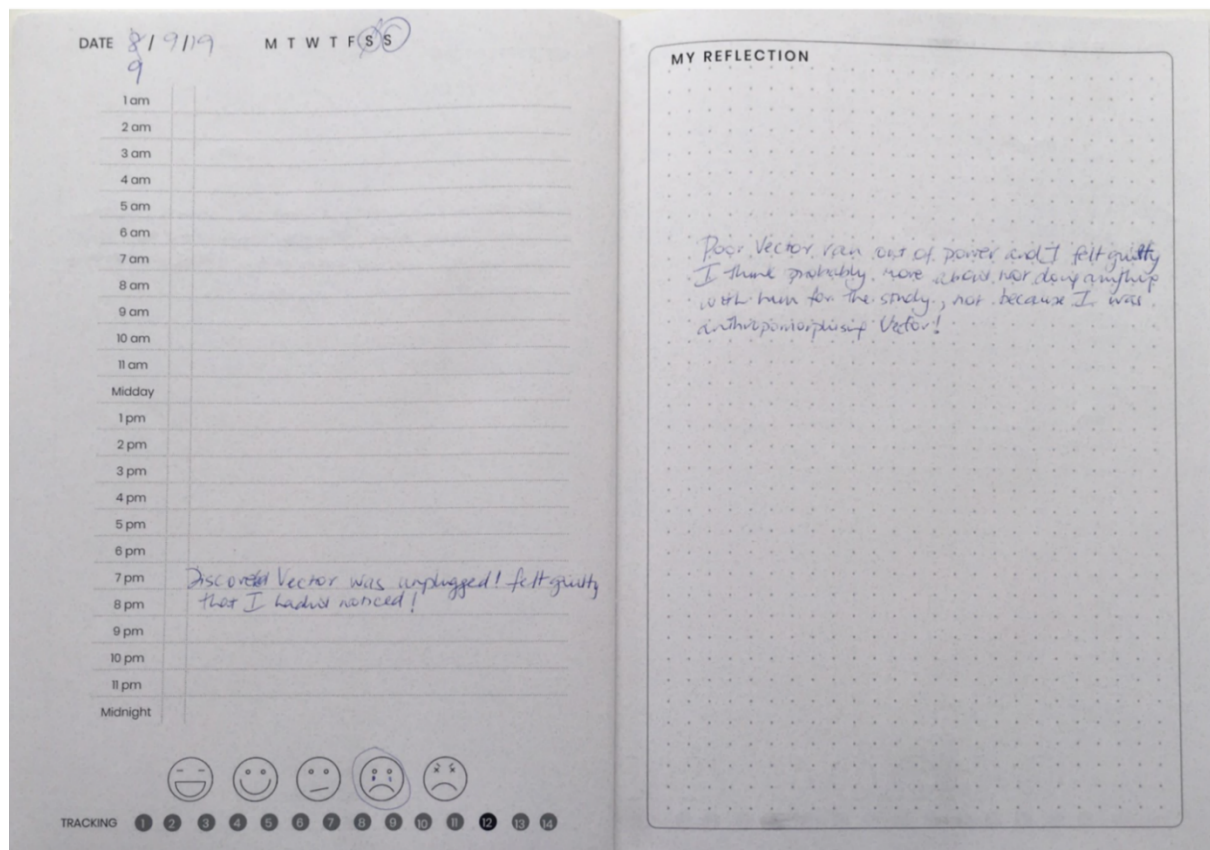 DATE 8/9/19 M T W T F S S
9
1 am
2 am
3 am
4 am
5 am
6 am
7 am
8 am
9 am
10 am
11 am
Midday
1 pm
2 pm
3 pm
4 pm
5 pm
6 pm
7 pm Discovered Vector was unplugged! felt guilty
8 pm that I hadn't noticed!
9 pm
10 pm
11 pm
Midnight
TRACKING 1 2 3 4 5 6 7 8 9 10 11 12 13 14
MY REFLECTION
Poor Vector ran out of power and I felt guilty
I think probably more about not doing anything
with him for the study, not because I was
anthropomorphising Vector!